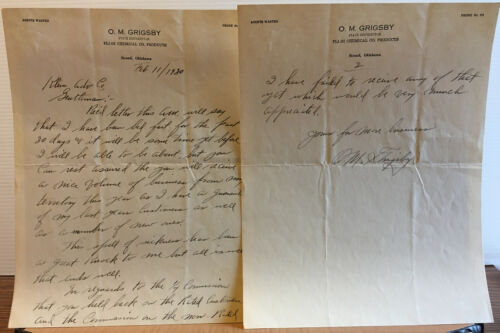 AGENTS WANTED
PHONE No.
O. M. GRIGSBY
STATE DISTRIBUTOR
CHEMICAL CO. PRODUCTS
Seward, Oklahoma
Feb 11/1930
Adv Co
Gentlemen:-
Recd letter this week, will say
that I have been bed fast for the past
30 days & it will be some time yet before
I will be able to be about, but you
can rest assured the you will receive
a nice volume of business from my
territory this year as I have a
of my last years customers as well
as a number of new ones.
This spell of sickness has been
a great to me but all is well
that ends well.
In regards to the Commission
that you held back on the
and the Commission on the
AGENTS WANTED
PHONE No.
O. M. GRIGSBY
STATE DISTRIBUTOR
CHEMICAL CO. PRODUCTS
Seward, Oklahoma
2
I have failed to receive any of that
yet which would be very much
appreciated.
Yours for more business
O. M. Grigsby